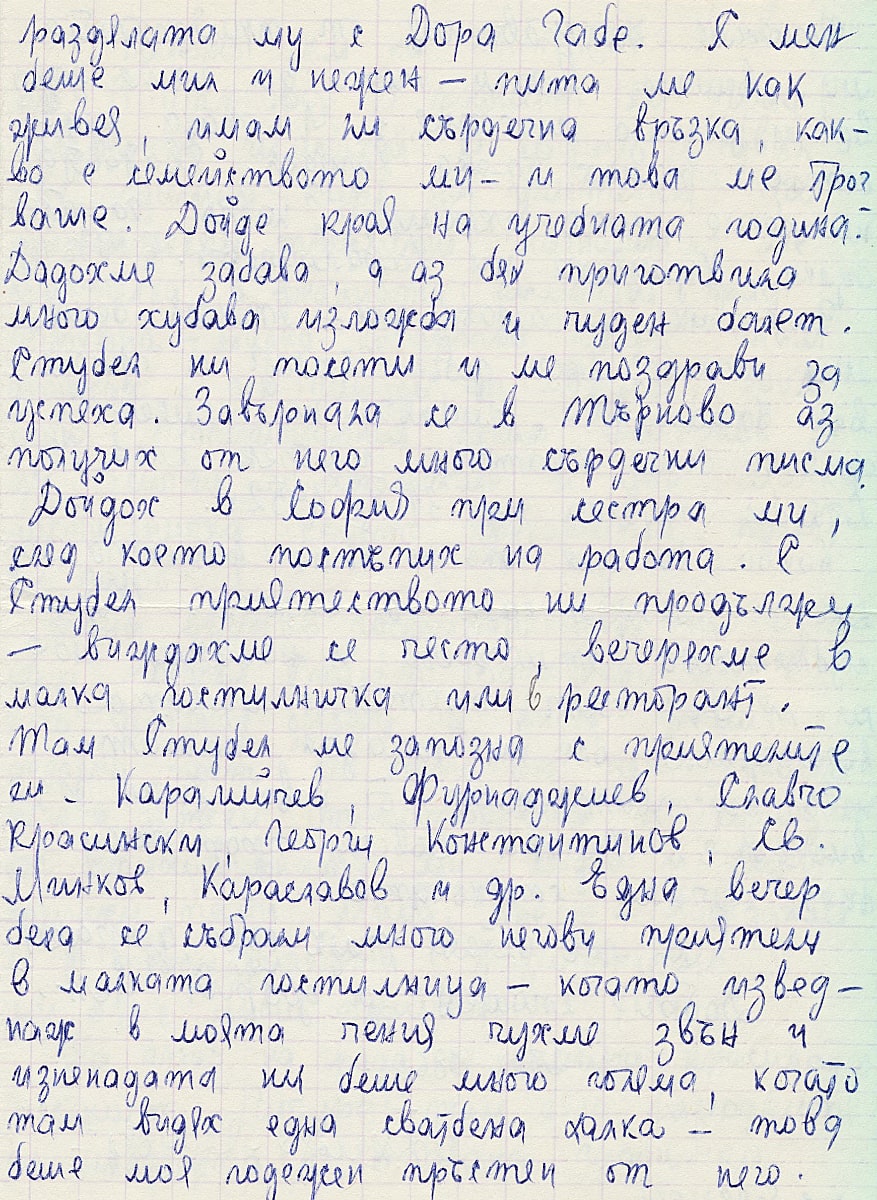 раздялата му с Дора Габе. С мен
беше мил и нежен – пита ме как
живея, имам ли сърдечна връзка, как-
во е семейството ми – и това ме трог
ваше. Дойде края на учебната година.
Дадохме забава, а аз бях приготвила
много хубава изложба и чуден балет.
Стубел ни посети и ме поздрави за
успеха. Завърнала се в Търново аз
получих от него много сърдечни писма.
Дойдох в София при сестра ми,
след което постъпих на работа. С
Стубел приятеството ни продължи
– виждахме се често, вечеряхме в
малка гостилничка или в ресторант.
Там Стубел ме запозна с приятелите
си – Каралийчев, Фурнаджиев, Славчо
Красински, Георги Константинов, Св.
Минков, Караславов и др. Една вечер
бяха се събрали много негови приятели
в малката гостилница – когато извед-
наж в моята чения чухме звън и
изненадата ни беше много голяма, когато
там видях една сватбена халка – това
беше моя годежен пръстен от него.